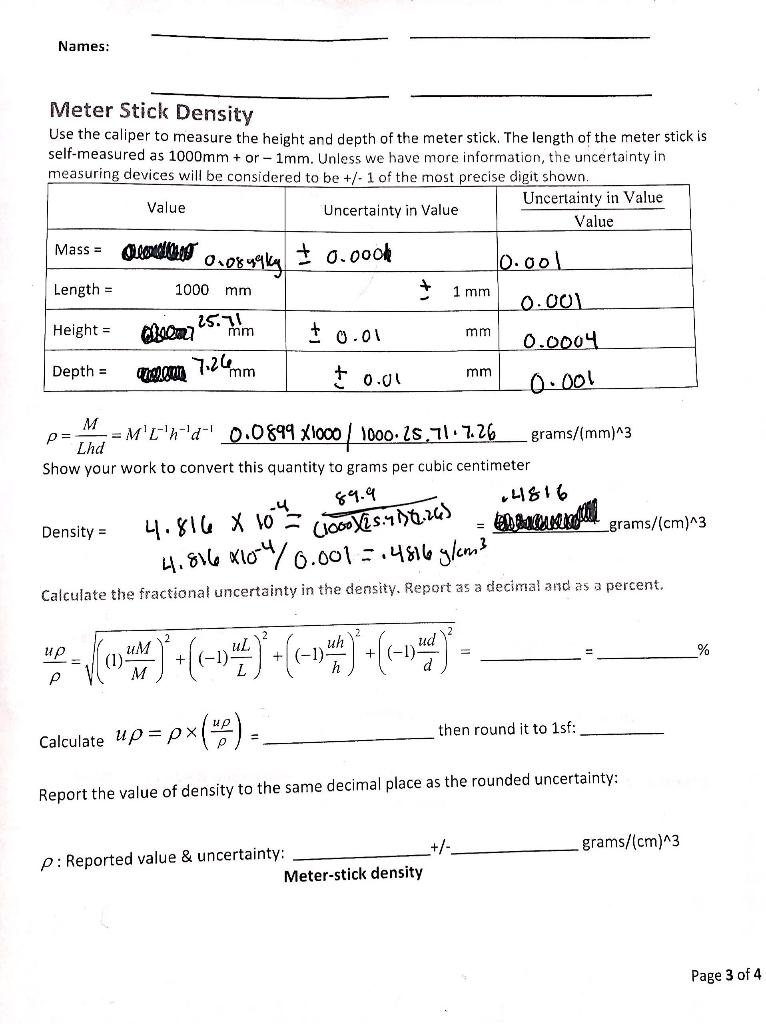 Names:
Meter Stick Density
Use the caliper to measure the height and depth of the meter stick. The length of the meter stick is
self-measured as 1000mm + or – 1mm. Unless we have more information, the uncertainty in
measuring devices will be considered to be +/- 1 of the most precise digit shown.
Value Uncertainty in Value Uncertainty in Value / Value
Mass = 0.0899kg ± 0.0001 0.001
Length = 1000 mm ± 1 mm 0.001
Height = 25.71 mm ± 0.01 mm 0.0004
Depth = 7.26 mm ± 0.01 mm 0.001
ρ = M / Lhd = M¹L⁻¹h⁻¹d⁻¹ 0.0899 X1000 / 1000·25.71·7.26 grams/(mm)^3
Show your work to convert this quantity to grams per cubic centimeter
Density = 4.816 X 10⁻⁴ = 89.9 / (1000)(25.71)(7.26) = .4816 grams/(cm)^3
4.816 X10⁻⁴/ 0.001 = .4816 g/cm³
Calculate the fractional uncertainty in the density. Report as a decimal and as a percent.
uρ / ρ = √((1) uM / M)² + ((-1) uL / L)² + ((-1) uh / h)² + ((-1) ud / d)² = = %
Calculate uρ = ρ × (uρ / ρ) = then round it to 1sf:
Report the value of density to the same decimal place as the rounded uncertainty:
ρ : Reported value & uncertainty: +/- grams/(cm)^3
Meter-stick density
Page 3 of 4